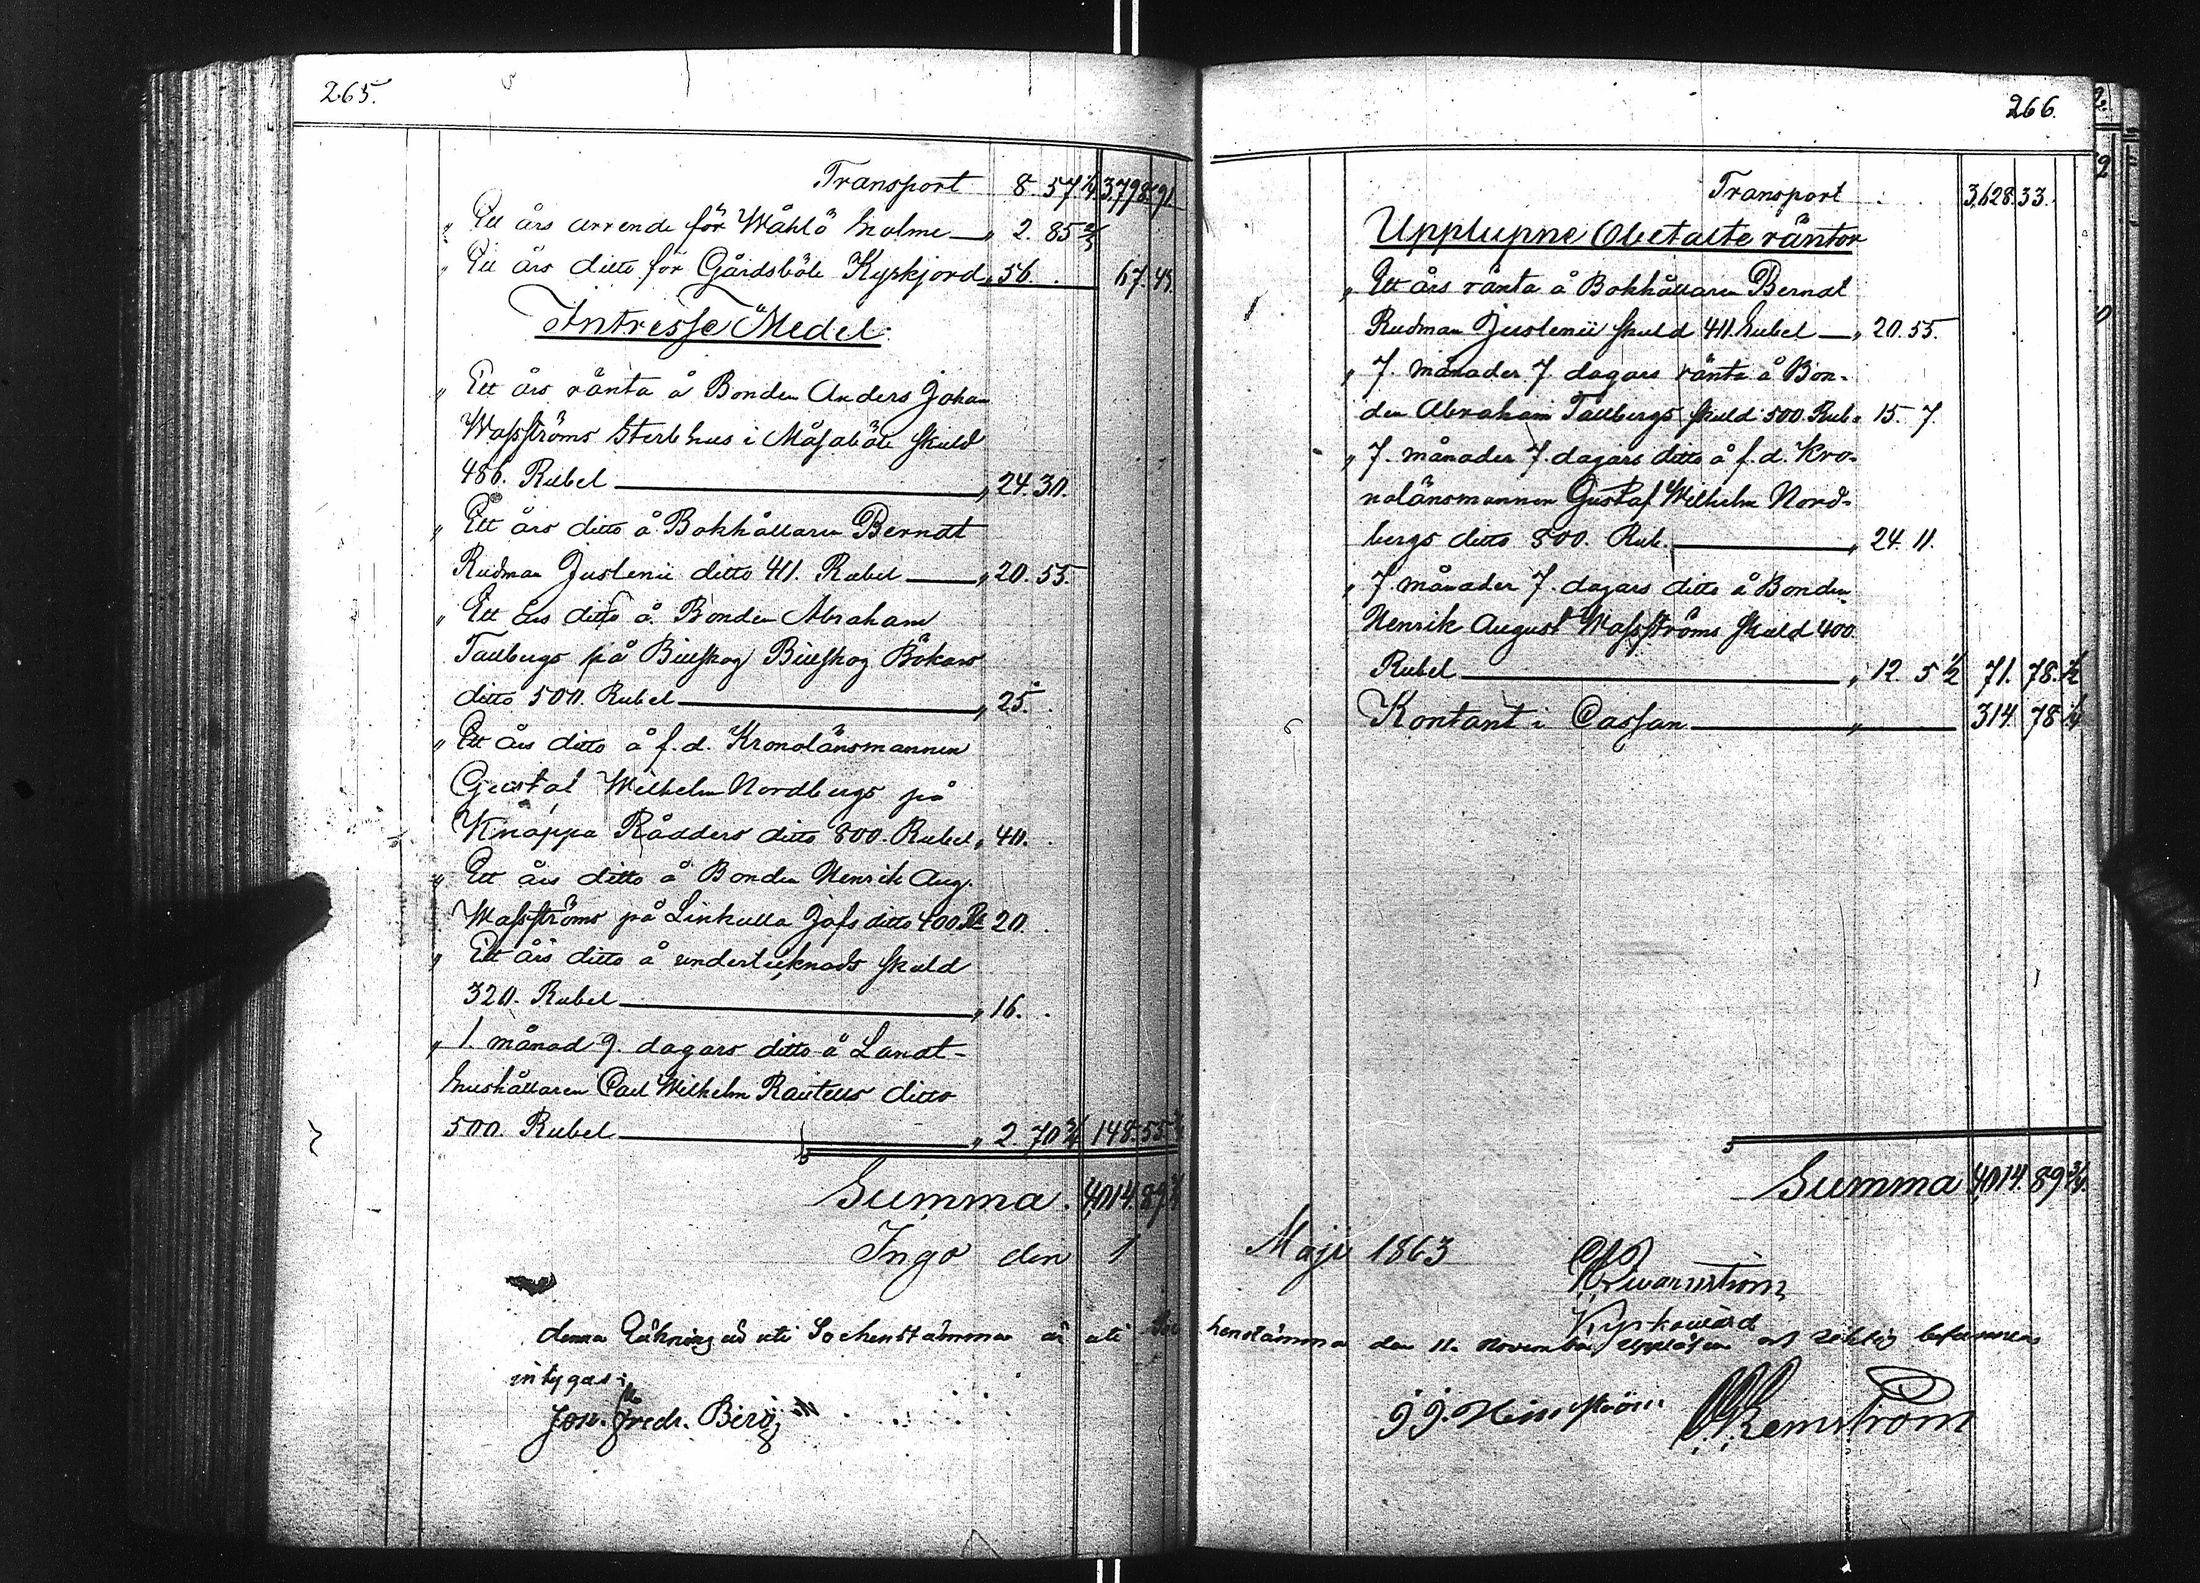 265.
Transport 8 57 1/4 3,798 91
" Ett års arrende för Wåhlö holme — " 2. 85 2/3
" Ett års ditto för Gårdsböle Kyrkjord " 56. . 67. 43.
Intresse Medel.
" Ett års ränta å Bonden Anders Johan
Wassströms Sterbhus i Måsaböle skuld
486. Rubel — " 24. 30.
" Ett års ditto å Bokhållaren Berndt
Rudman Justenii ditto 411. Rubel — " 20. 55.
" Ett års ditto å Bonden Abraham
Tallbergs på Billskog Billskog Bökars
ditto 500. Rubel — " 25. .
" Ett års ditto å f. d. Kronolänsmannen
Gustaf Wilhelm Nordbergs på
Knäppa Rådders ditto 800. Rubel " 40. .
" Ett års ditto å Bonden Henrik Aug.
Wassströms på Linkulla Jofs ditto 400 Rb 20. .
" Ett års ditto å undertecknads skuld
320. Rubel — " 16. .
" 1. månad 9. dagars ditto å Landt-
hushållaren Carl Wilhelm Rautells ditto
500. Rubel — " 2 70 3/4 148. 55 3/4
Summa . 4,014. 89 3/4
Ingo den 1
denna Räkning är uti Sockenstämma är uti Soc
intygas;
Jon. Fredr. Berg
266.
Transport . 3,628. 33.
Upplupne Obetalte räntor
" Ett års ränta å Bokhållaren Berndt
Rudman Justenii skuld 411. Rubel — " 20. 55.
" 7. månader 7. dagars ränta å Bon-
den Abraham Tallbergs skuld 500. Rub. " 15. 7.
" 7. månader 7. dagars ditto å f. d. Kro-
nolänsmannen Gustaf Wilhelm Nord-
bergs ditto 800. Rub. — " 24. 11.
" 7 månader 7. dagars ditto å Bonden
Henrik August Wassströms skuld 400.
Rubel — " 12 5 1/2 71. 78. 1/2
Kontant i Cassan — " — 314. 78 1/4
Summa 4,014. 89 3/4.
Maji 1863
Qwarnström
Kyrkowärd
kenstämma den 11. November uppläsen och riktig befunnen
J J. Hellström Remström